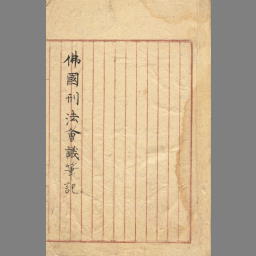 佛國刑法會議筆記